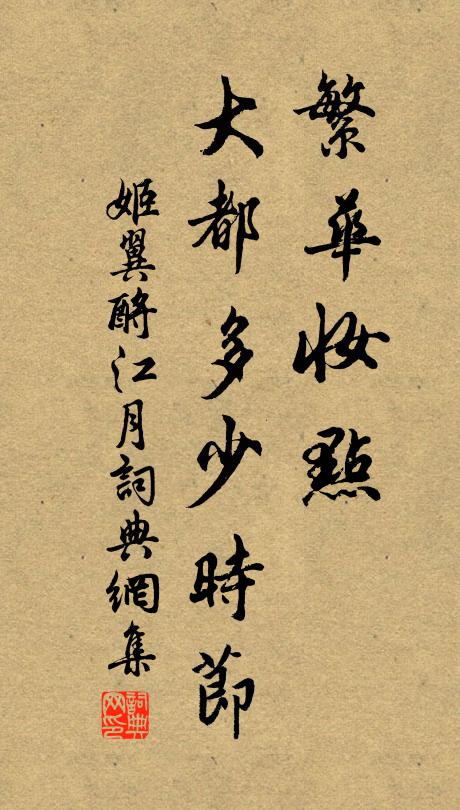 繁華妝點
大都多少時節
姬翼酹江月詞典網集
詞典网印